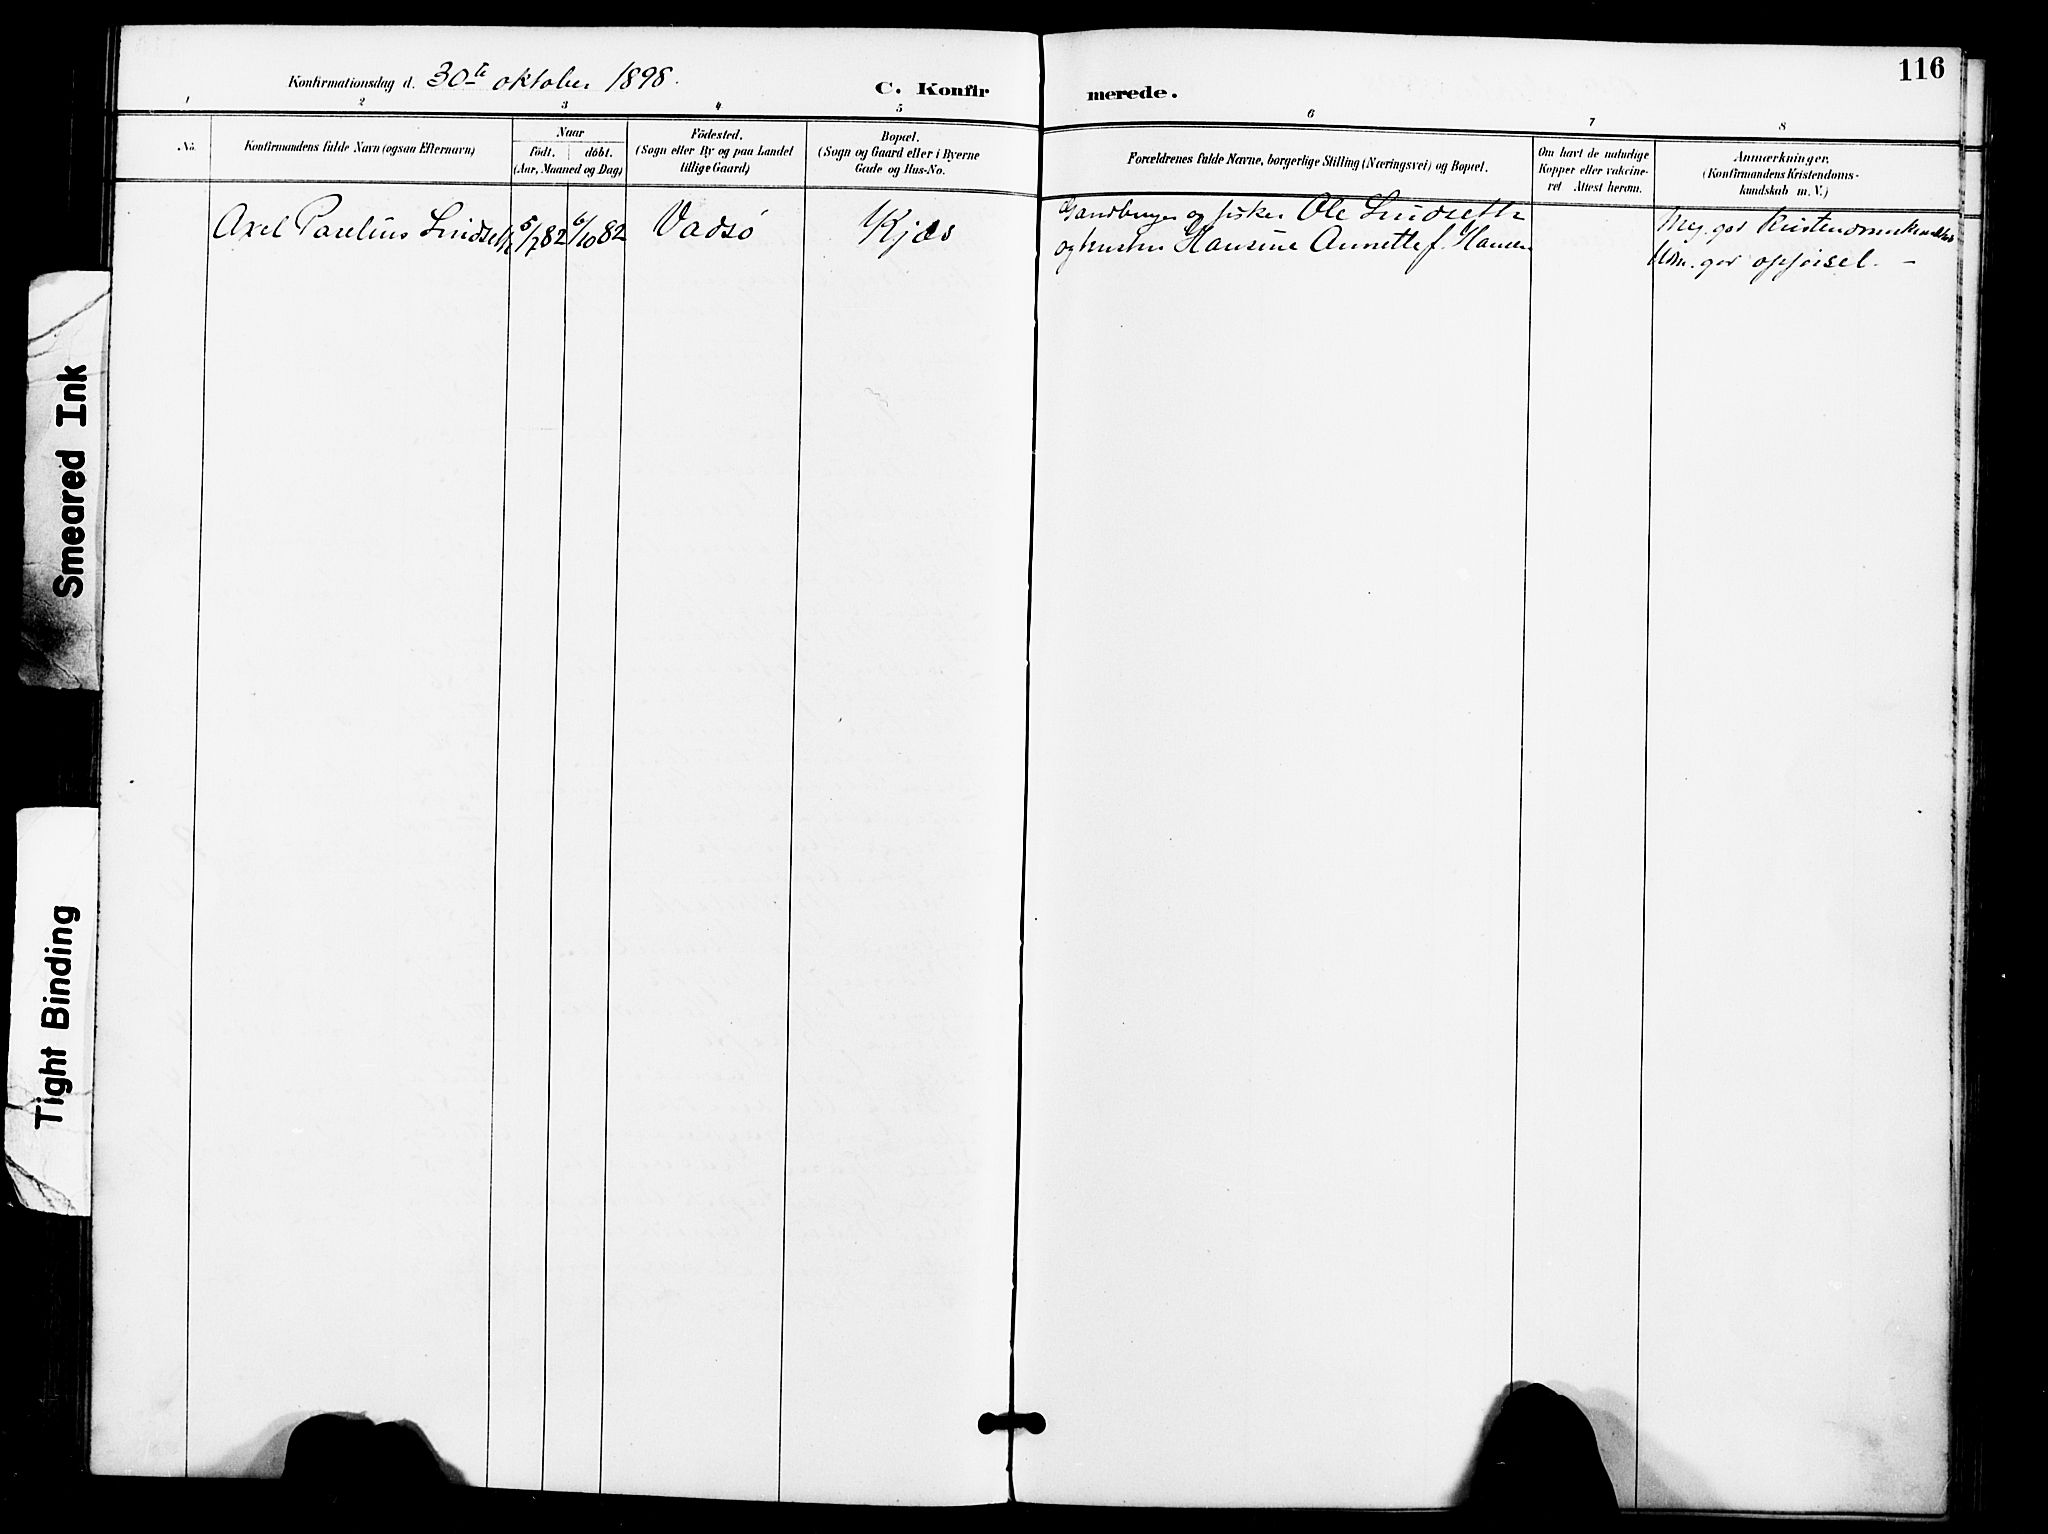 116
Konfirmationsdag d. 30te oktober 1898.
C. Konfirmerede.
1 2 3 4 5 6 7 8
No.
Konfirmandens fulde Navn (ogsaa Efternavn)
Naar
født. døbt.
(Aar, Maaned og Dag)
Födested.
(Sogn eller By og paa Landet
tillige Gaard)
Bopæl.
(Sogn og Gaard eller i Byerne
Gade og Hus-No.
Forældrenes fulde Navne, borgerlige Stilling (Næringsvei) og Bopæl.
Om havt de naturlige
Kopper eller vakcine-
ret Attest herom.
Anmærkninger.
(Konfirmandens Kristendoms-
kundskab m. V.)
Axel Paulius Lindseth 5/7 82 6/10 82 Vadsø Kjæs
og fisker Ole Lindseth
og hustru Hansine Annette f. Hansen
Meg. god
god opførsel. –
Smeared Ink
Tight Binding